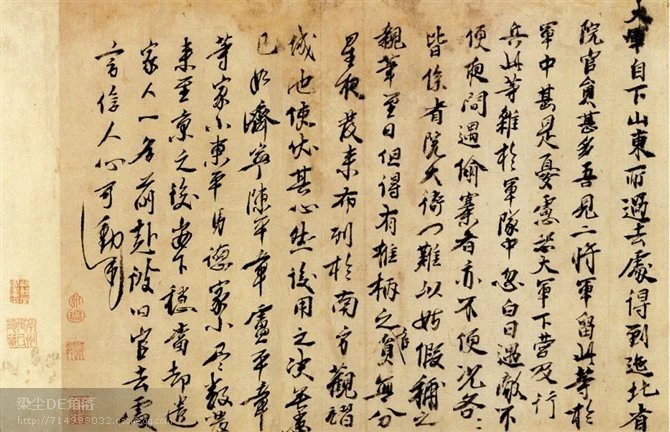 大軍自下山東所過去處得到迤北省
院官員甚多吾見二將軍留此等於
軍中甚是憂慮恐大軍下營及行
兵此等雜於軍隊中忽白日遇敵不
便夜間遇偷寨者亦不便況各〻
皆係省院大衙門難以姑假補之
親筆至日但得有椎柄之官員無分
星夜發來布列於南方觀
城池使伏其心然後用之決無患
已如濟寧陳平章盧平章
等家小東平馬德家小尽數發
來至京之後安下穩當却遣
家人一名前赴彼旧官去處
言信人心可動
染尘DE角落
http://714998032.qzone.qq.com